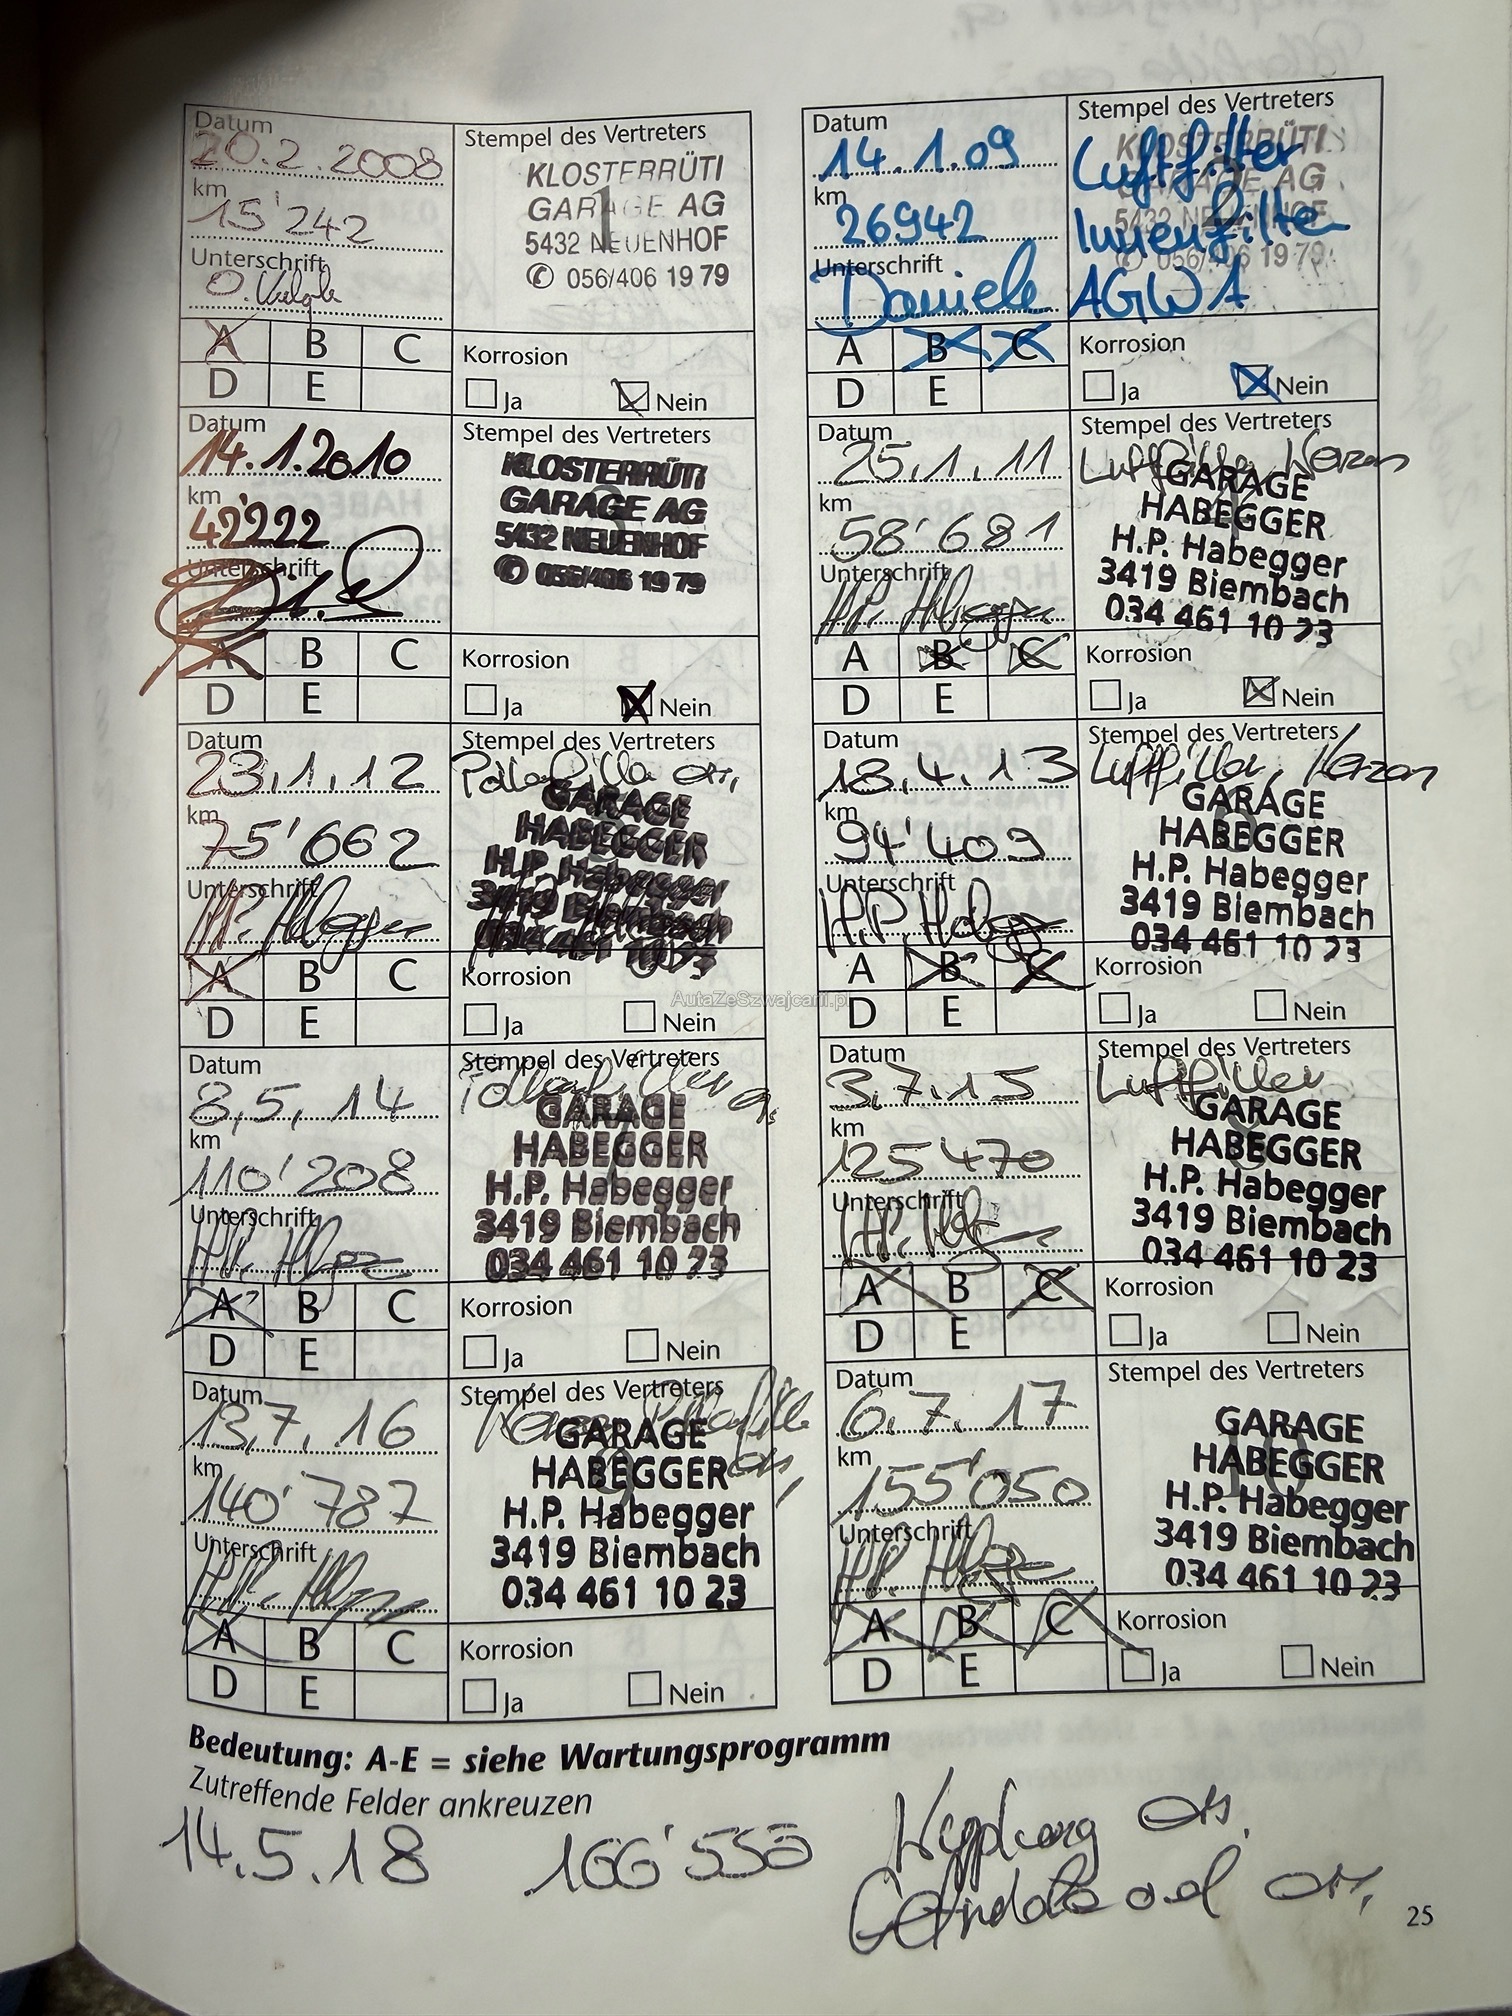 Datum
20.2.2008
km
15'242
Unterschrift
Stempel des Vertreters
KLOSTERRÜTI
GARAGE AG
5432 NEUENHOF
✆ 056/406 19 79
A B C
D E
Korrosion
Ja Nein
Datum
14.1.09
km
26942
Unterschrift
Daniele
Stempel des Vertreters
KLOSTERRÜTI
GARAGE AG
5432 NEUENHOF
✆ 056/406 19 79
Luftfilter
Innenfilter
AGWA
A B C
D E
Korrosion
Ja Nein
Datum
14.1.2010
km
42'222
Unterschrift
Stempel des Vertreters
KLOSTERRÜTI
GARAGE AG
5432 NEUENHOF
✆ 056/406 19 79
A B C
D E
Korrosion
Ja Nein
Datum
25.1.11
km
58'681
Unterschrift
H.P. Habegger
Stempel des Vertreters
Luftfilter Kerzen
GARAGE
HABEGGER
H.P. Habegger
3419 Biembach
034 461 10 23
A B C
D E
Korrosion
Ja Nein
Datum
23.1.12
km
75'662
Unterschrift
H.P. Habegger
Stempel des Vertreters
Pollenfilter ers.
GARAGE
HABEGGER
H.P. Habegger
3419 Biembach
034 461 10 23
A B C
D E
Korrosion
Ja Nein
Datum
18.4.13
km
94'409
Unterschrift
H.P. Habegger
Stempel des Vertreters
Luftfilter, Kerzen
GARAGE
HABEGGER
H.P. Habegger
3419 Biembach
034 461 10 23
A B C
D E
Korrosion
Ja Nein
AutaZeSzwajcarii.pl
Datum
8.5.14
km
110'208
Unterschrift
H.P. Habegger
Stempel des Vertreters
Pollenfilter
GARAGE
HABEGGER
H.P. Habegger
3419 Biembach
034 461 10 23
A B C
D E
Korrosion
Ja Nein
Datum
3.7.15
km
125470
Unterschrift
H.P. Habegger
Stempel des Vertreters
Luftfilter
GARAGE
HABEGGER
H.P. Habegger
3419 Biembach
034 461 10 23
A B C
D E
Korrosion
Ja Nein
Datum
13.7.16
km
140'787
Unterschrift
H.P. Habegger
Stempel des Vertreters
Kerzen Pollenfilter
ers.
GARAGE
HABEGGER
H.P. Habegger
3419 Biembach
034 461 10 23
A B C
D E
Korrosion
Ja Nein
Datum
6.7.17
km
155'050
Unterschrift
H.P. Habegger
Stempel des Vertreters
GARAGE
HABEGGER
H.P. Habegger
3419 Biembach
034 461 10 23
A B C
D E
Korrosion
Ja Nein
Bedeutung: A-E = siehe Wartungsprogramm
Zutreffende Felder ankreuzen
14.5.18 166'550 ers.
ers.
25